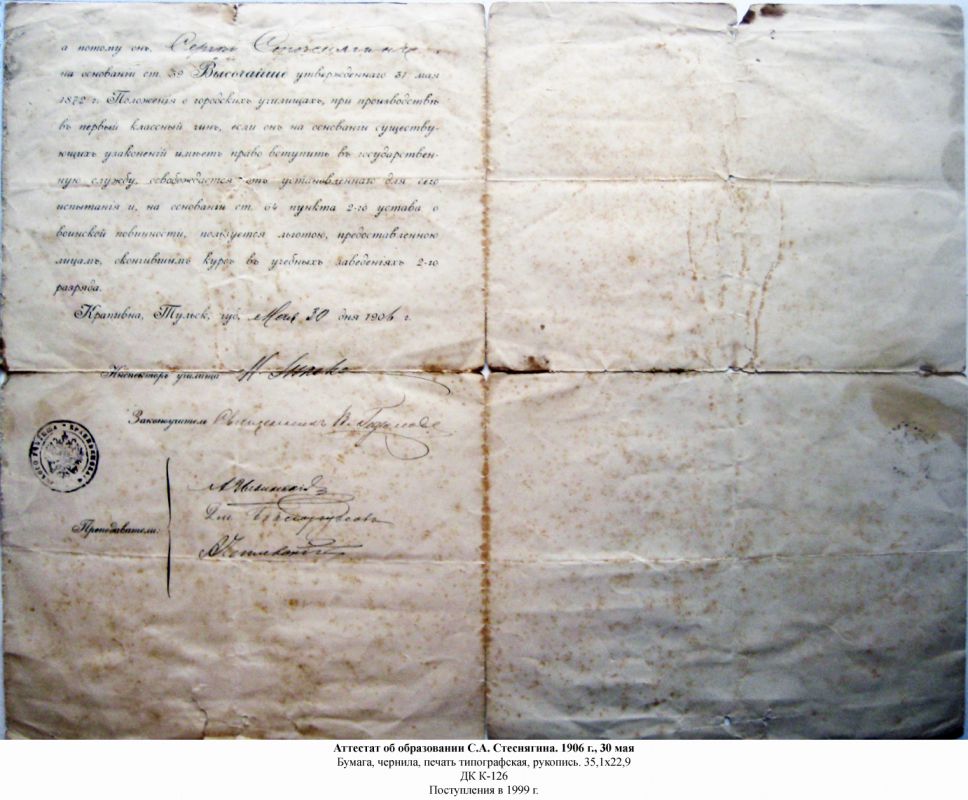 а потому онъ, Сергѣй Стеснягинъ
на основаніи ст. 39 Высочайше утвержденнаго 31 мая
1872 г. Положенія о городскихъ училищахъ, при производствѣ
въ первый классный чинъ, если онъ на основаніи существу-
ющихъ узаконеній имѣетъ право вступить въ государствен-
ную службу, освобождается отъ установленнаго для сего
испытанія и, на основаніи ст. 64 пункта 2-го устава о
воинской повинности, пользуется льготою, предоставленною
лицамъ, окончившимъ курсъ въ учебныхъ заведеніяхъ 2-го
разряда.
Крапивна, Тульск. губ. Мая 30 дня 1906 г.
Инспекторъ училища
Законоучитель Священникъ
Преподаватели:
Аттестат об образовании С.А. Стеснягина. 1906 г., 30 мая
Бумага, чернила, печать типографская, рукопись. 35,1х22,9
ДК К-126
Поступления в 1999 г.